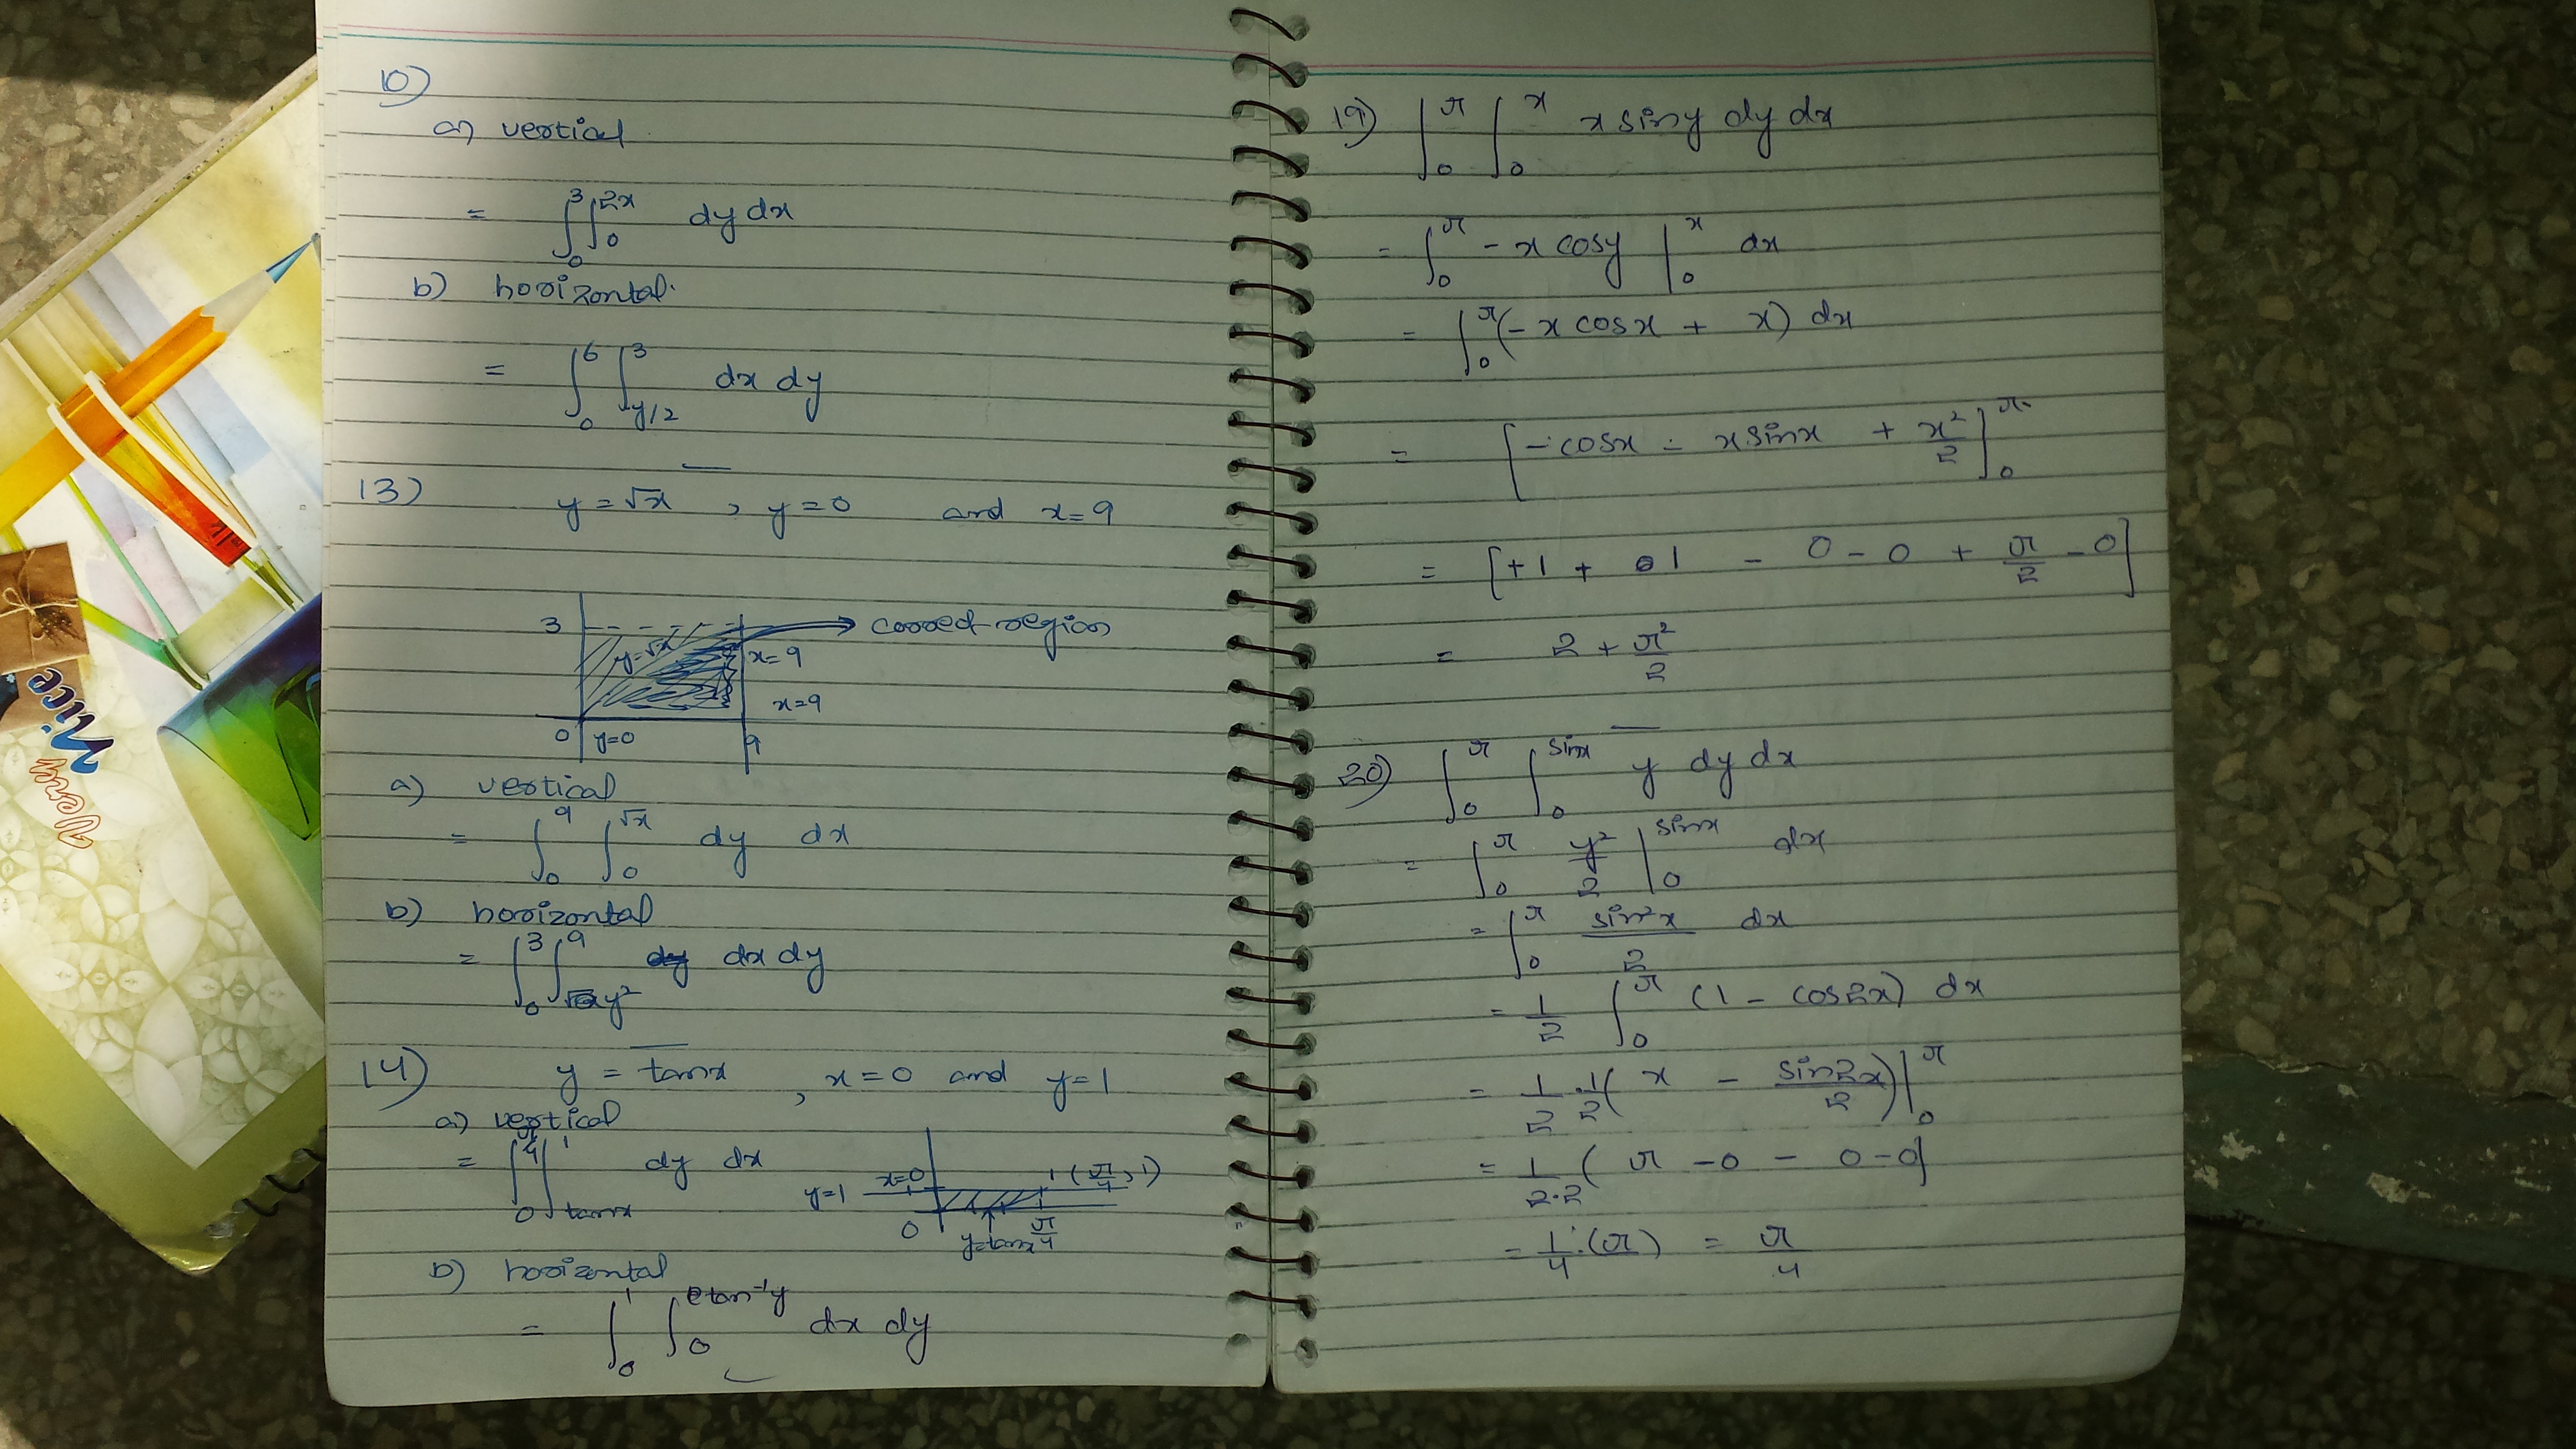 10)
a) vertical
= ∫₀³ ∫₀^{2x} dy dx
b) horizontal.
= ∫₀⁶ ∫_{y/2}^{3} dx dy
13) y = √x , y = 0 and x = 9
3
covered region
y=√x
x=9
x=9
0 y=0 9
a) vertical
= ∫₀⁹ ∫₀^{√x} dy dx
b) horizontal
= ∫₀³ ∫_{y²}^{9} dx dy
14) y = tanx , x = 0 and y = 1
a) vertical
= ∫₀^{π/4} ∫_{tanx}^{1} dy dx
y=1 x=0 1 (π/4, 1)
0 y=tanx π/4
b) horizontal
= ∫₀¹ ∫₀^{tan⁻¹y} dx dy
19) ∫₀^π ∫₀^x x siny dy dx
= ∫₀^π - x cosy |₀^x dx
= ∫₀^π (- x cosx + x) dx
= [- cosx - x sinx + x²/2]₀^π
= [+1 + 1 - 0 - 0 + π/2 - 0]
= 2 + π²/2
20) ∫₀^π ∫₀^{sinx} y dy dx
= ∫₀^π y²/2 |₀^{sinx} dx
= ∫₀^π sin²x/2 dx
= 1/2 ∫₀^π (1 - cos2x) dx
= 1/2 · 1/2 ( x - sin2x/2 ) |₀^π
= 1/2·2 ( π - 0 - 0 - 0]
= 1/4 · (π) = π/4
Very
Nice